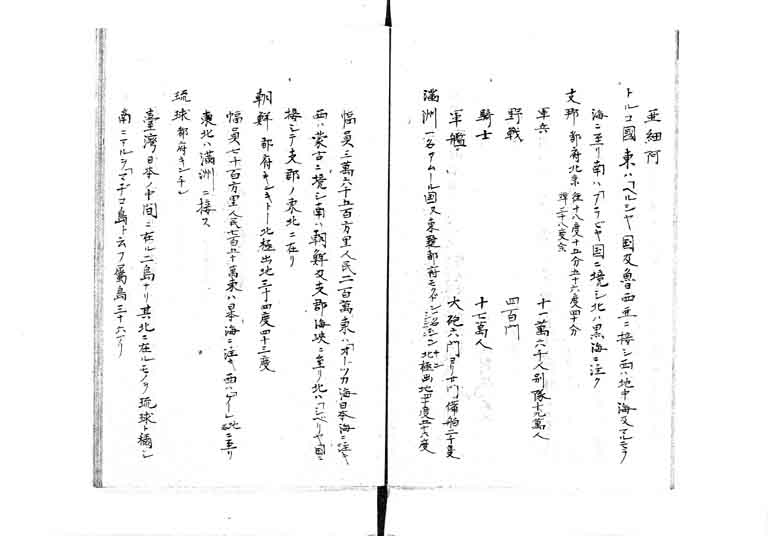 亜細阿
トルコ國東ハ「ペルシヤ国及魯西亜ニ接シ西ハ地中海又マルモラ
海ニ至リ南ハ「アラビヤ国ニ境シ北ハ黒海ニ注ク
支那 都府北京 十八度十五分五十六度四十分
軍兵 十一萬六千人別隊十九萬人
野戦 四百門
騎士 十七萬人
軍艦 大砲六門ヨリ十門備船二千隻
満洲 一名アムール国又 都府 北極出地四十度五十六度
幅員三萬六千五百方里人民二百萬東ハ「オーツカ海日本海ニ注キ
西ハ蒙古ニ境シ南ハ朝鮮及支那海峡ニ至リ北ハ「シベリヤ国ニ
接シテ支那ノ東北ニ在リ
朝鮮 都府キンキトー北極出地三十四度四十三度
幅員七千百方里人民七百五十萬東ハ日本海ニ注キ西ハ 北ニ至リ
東北ハ満洲ニ接ス
琉球 都府キンチン
臺湾日本ノ中間ニ在ル二島ナリ其北ニ在ルモノヲ琉球ト称シ
南ニアルヲ「マデコ島ト云フ屬島三十六アリ